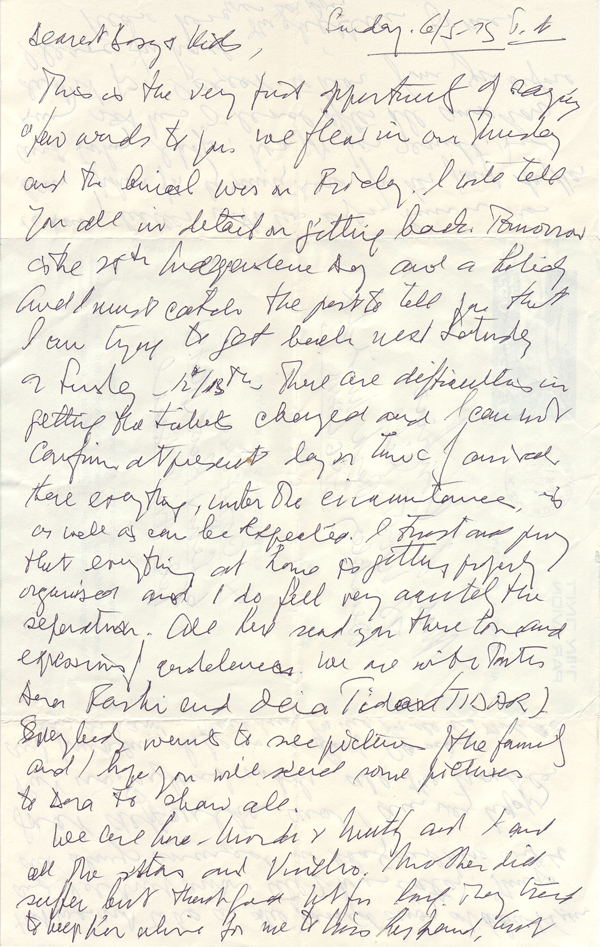 Sunday. 6/5 75 T.A
Dearest & Kids,
This is the very first opportunity of saying
a few words to you. We flew in on Thursday
and the burial was on Friday. I will tell
you all in detail on getting back. Tomorrow
is the Independence Day and a Holiday
and I must catch the post to tell you that
I am trying to get back next Saturday
or Sunday 12/13th. There are difficulties in
getting the tickets changed and I can not
confirm at present day or time of arrival
there everything, under the circumstances, is
as well as can be expected. I trust and pray
that everything at home is getting properly
organised and I do feel very the
separation. All here send you their love and
expressions of condolences. We are with
Dora and
Everybody wants to see pictures of the family
and I hope you will send some pictures
to Dora to show all.
We are here - & and I and
all the and. Mother did
suffer but thank God not for long. They tried
to keep her alive for me to